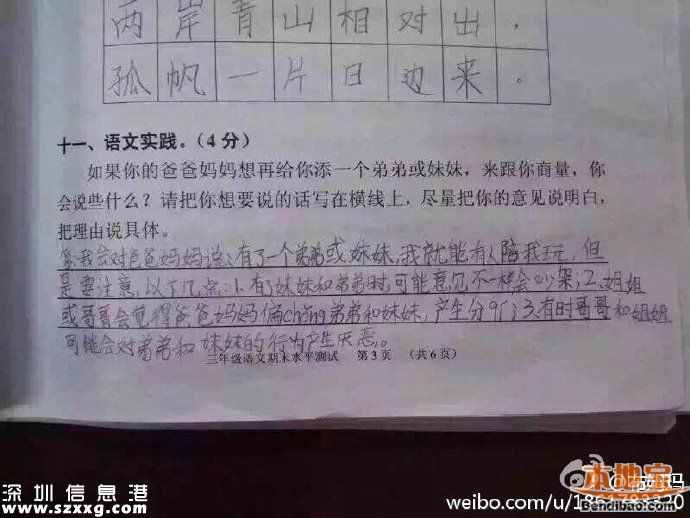 两岸青山相对出，
孤帆一片日边来。
十一、语文实践。（4分）
如果你的爸爸妈妈想再给你添一个弟弟或妹妹，来跟你商量，你
会说些什么？请把你想要说的话写在横线上，尽量把你的意见说明白，
把理由说具体。
我会对爸爸妈妈说：有了一个弟弟或妹妹，我就能有人陪我玩，但
是要注意以下几点：1、有了妹妹和弟弟时，可能意见不一样会吵架；2、姐姐
或哥哥会觉得爸爸妈妈偏chǒng弟弟和妹妹，产生分qí；3、有时哥哥和姐姐
可能会对弟弟和妹妹的行为产生厌恶。
三年级语文期末水平测试 第3页 （共6页）
深圳信息港
www.szxxg.com
本地宝
Bendibao.com
weibo.com/u/1861793320